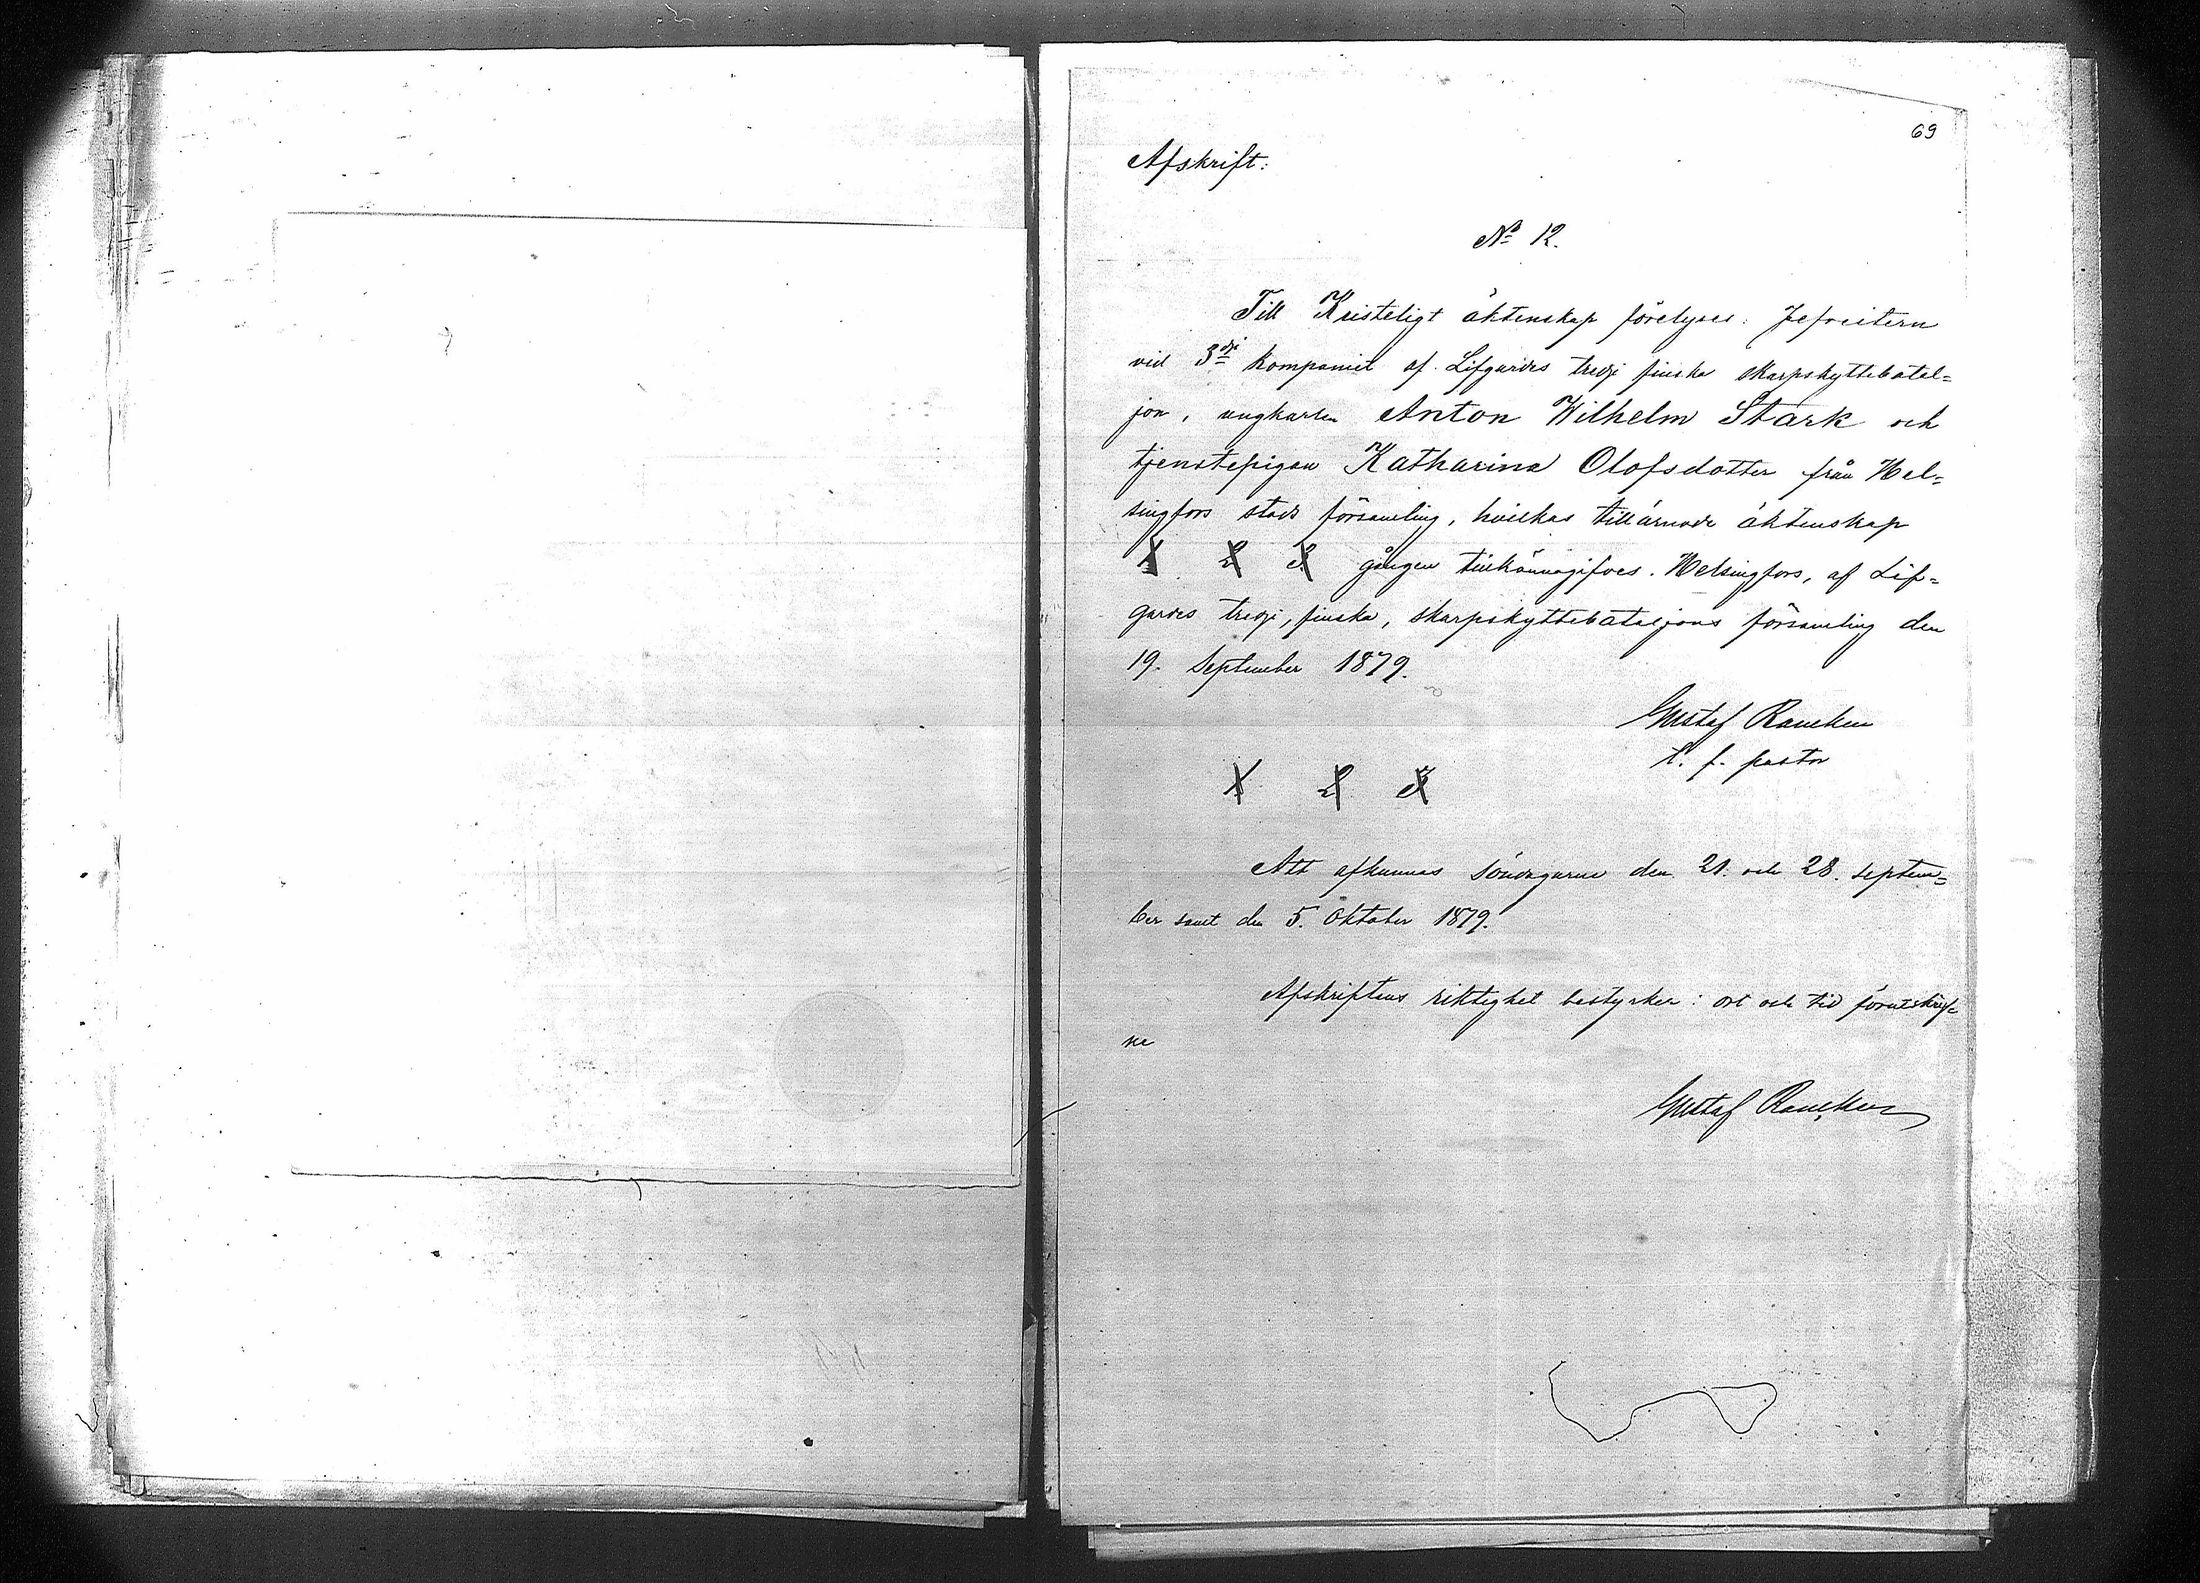 69
Afskrift:
No 12.
Till Kristeligt äktenskap förelyses: Jefreitern
vid 3dje kompaniet af Lifgardes tredje finska skarpskyttebatal=
jon, ungkarlen Anton Wilhelm Stark och
tjenstepigan Katharina Olofsdotter från Hel=
singfors stads församling, hvilkas tillärnade äktenskap
1 2 3 gången tillkännagifves. Helsingfors, af Lif=
gardes tredje, finska, skarpskyttebataljons församling den
19. September 1879.
Gustaf Rancken
t. f. pastor
1 2 3
Att afkunnas söndagarne den 21. och 28. septem=
ber samt den 5. Oktober 1879.
Afskriftens riktighet bestyrker: ort och tid förutskrif=
ne
Gustaf Rancken